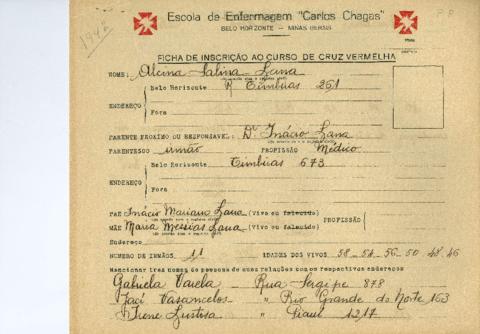 1942
Escola de Enfermagem "Carlos Chagas"
BELO HORIZONTE — MINAS GERAIS
FICHA DE INSCRIÇÃO AO CURSO DE CRUZ VERMELHA
NOME: Alcina Salina Lana
Belo Horizonte R Timbiras 251
ENDEREÇO
Fora
PARENTE PROXIMO OU RESPONSAVEL: Dr. Inácio Lana
PARENTESCO irmão PROFISSÃO Médico
Belo Horizonte Timbiras 673
ENDEREÇO
Fora
PAE Inácio Mariano Lana (Vivo ou falecido) PROFISSÃO
MÃE Maria Messias Lana (Vivo ou falecido)
Endereço
NUMERO DE IRMÃOS 11 IDADES DOS VIVOS 58-54-56-50 48-46
Mencionar tres nomes de pessoas de suas relações com os respectivos endereços
Gabriela Varela – Rua Sergipe 878
Jací Vasconcelos – " Rio Grande do Norte 163
Irene Lustosa – " Piauí 1217